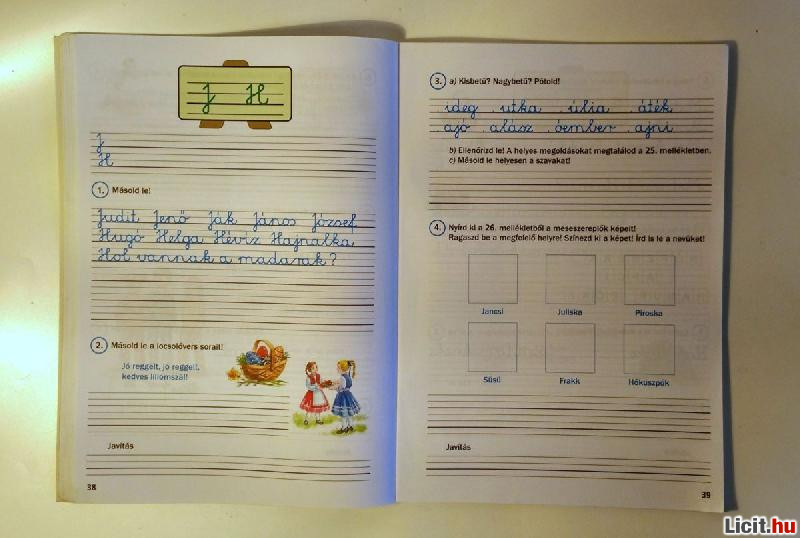 J H
J
H
1. Másold le!
Judit Jenő Ják János József
Hugó Helga Hévíz Hajnalka
Hol vannak a madarak?
2. Másold le a locsolóvers sorait!
Jó reggelt, jó reggelt,
kedves liliomszál!
Javítás
38
3. a) Kisbetű? Nagybetű? Pótold!
ideg utka úlia áték
ajó alász óember ajni
b) Ellenőrizd le! A helyes megoldásokat megtalálod a 25. mellékletben.
c) Másold le helyesen a szavakat!
4. Nyírd ki a 26. mellékletből a meseszereplők képeit!
Ragaszd be a megfelelő helyre! Színezd ki a képet! Írd is le a nevüket!
Jancsi Juliska Piroska
Süsü Frakk Hókuszpók
Javítás
39
Licit.hu